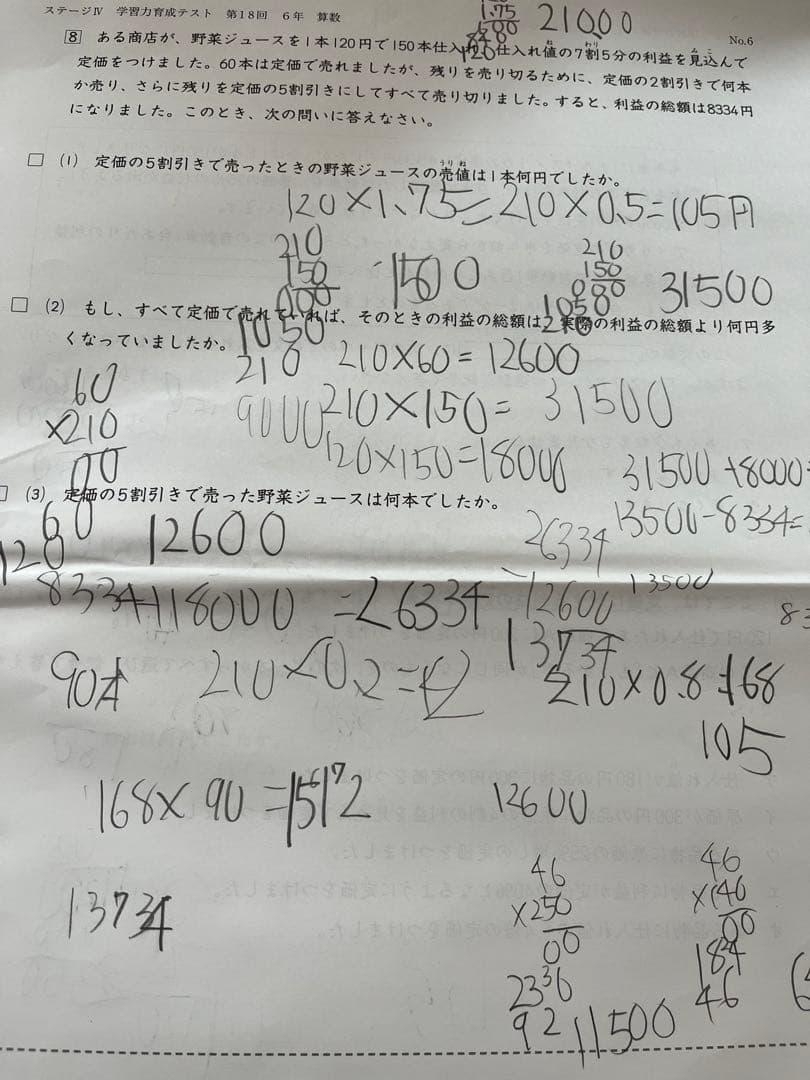 ステージⅣ 学習力育成テスト 第18回 6年 算数
1.75
21000
No.6
8 ある商店が、野菜ジュースを1本120円で150本仕入れ、仕入れ値の7割5分の利益を見込んで
定価をつけました。60本は定価で売れましたが、残りを売り切るために、定価の2割引きで何本
か売り、さらに残りを定価の5割引きにしてすべて売り切りました。すると、利益の総額は8334円
になりました。このとき、次の問いに答えなさい。
□ (1) 定価の5割引きで売ったときの野菜ジュースの売値は1本何円でしたか。
120×1.75=210×0.5=105円
210
150
000
1050
210
210
150
000
1050
210
31500
□ (2) もし、すべて定価で売れていれば、そのときの利益の総額は、実際の利益の総額より何円多
くなっていましたか。
210×60=12600
60
×210
00
60
120
9000
210×150=31500
120×150=18000
31500+8000=
□ (3) 定価の5割引きで売った野菜ジュースは何本でしたか。
13500-8334=
12600
26334
-12600
13734
13500
8334+18000=26334
90本
210×0.2=42
210×0.8=168
105
168×90=15172
12600
13734
46
×250
00
2336
92
11500
46
×146
00
184
46